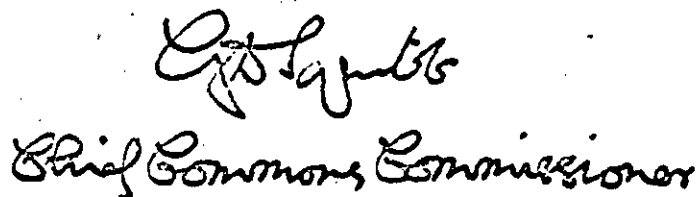 G D Squibb
Chief Commons Commissioner